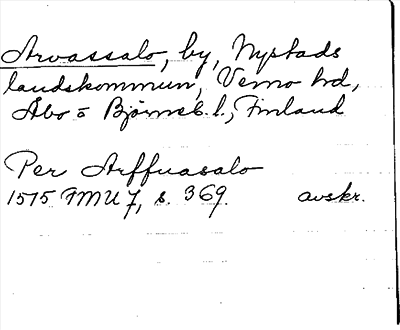 Arvassalo, by, Nystads
landskommun, Vemo hd,
Åbo o Björneb. l., Finland
Per Arffuasalo
1575 FMU 7, s. 369. avskr.